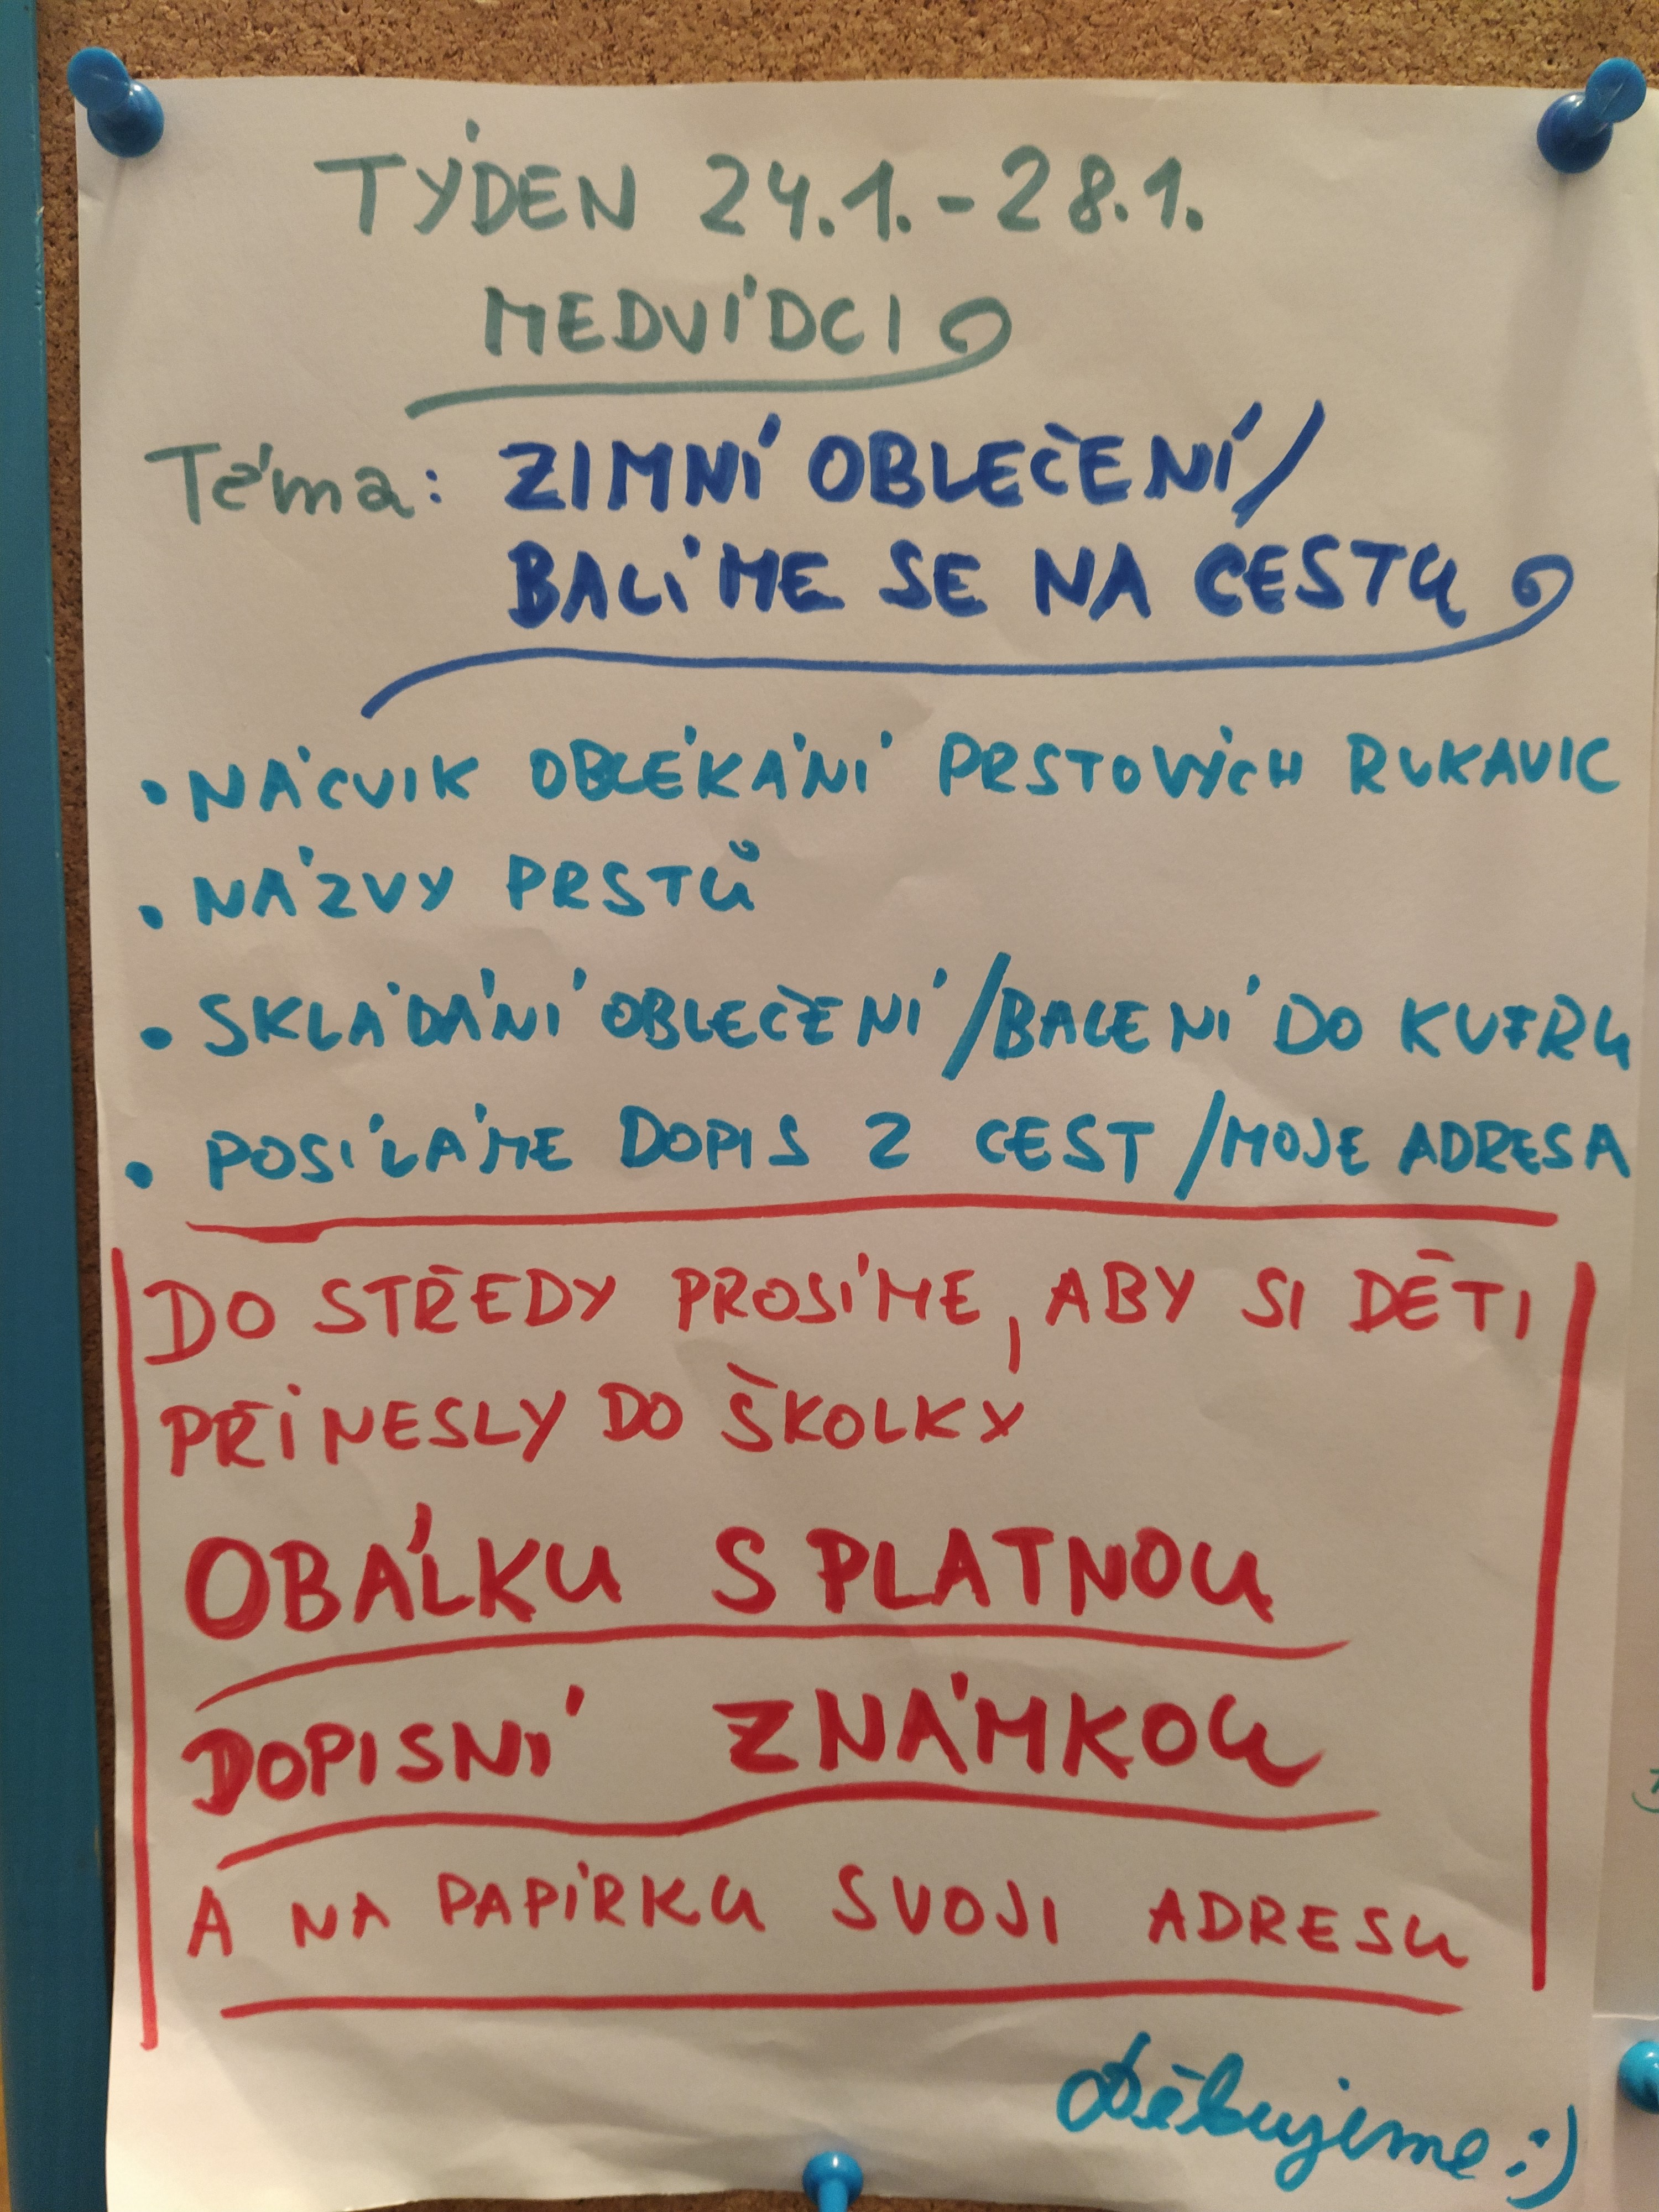 TÝDEN 24.1.-28.1.
MEDVÍDCI
Téma: ZIMNÍ OBLEČENÍ/
BALÍME SE NA CESTU
• NÁCVIK OBLÉKÁNÍ PRSTOVÝCH RUKAVIC
• NÁZVY PRSTŮ
• SKLÁDÁNÍ OBLEČENÍ/BALENÍ DO KUFRU
• POSÍLÁME DOPIS Z CEST/MOJE ADRESA
DO STŘEDY PROSÍME, ABY SI DĚTI
PŘINESLY DO ŠKOLKY
OBÁLKU S PLATNOU
DOPISNÍ ZNÁMKOU
A NA PAPÍRKU SVOJI ADRESU
Děkujeme :)